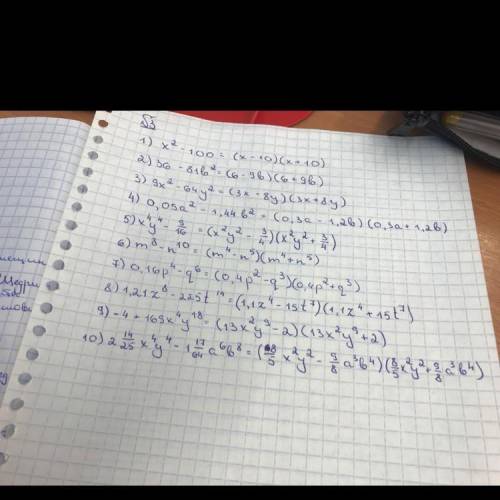 №3
1) x² - 100 = (x - 10)(x + 10)
2) 36 - 81b² = (6 - 9b)(6 + 9b)
3) 9x² - 64y² = (3x - 8y)(3x + 8y)
4) 0,09a² - 1,44b² = (0,3a - 1,2b)(0,3a + 1,2b)
5) x⁴y⁴ - 9/16 = (x²y² - 3/4)(x²y² + 3/4)
6) m⁸ - n¹⁰ = (m⁴ - n⁵)(m⁴ + n⁵)
7) 0,16p⁴ - q⁶ = (0,4p² - q³)(0,4p² + q³)
8) 1,21z⁸ - 225t¹⁴ = (1,1z⁴ - 15t⁷)(1,1z⁴ + 15t⁷)
9) -4 + 169x⁴y¹⁸ = (13x²y⁹ - 2)(13x²y⁹ + 2)
10) 2 14/25 x⁴y⁴ - 1 17/64 a⁶b⁸ = (8/5 x²y² - 9/8 a³b⁴)(8/5 x²y² + 9/8 a³b⁴)